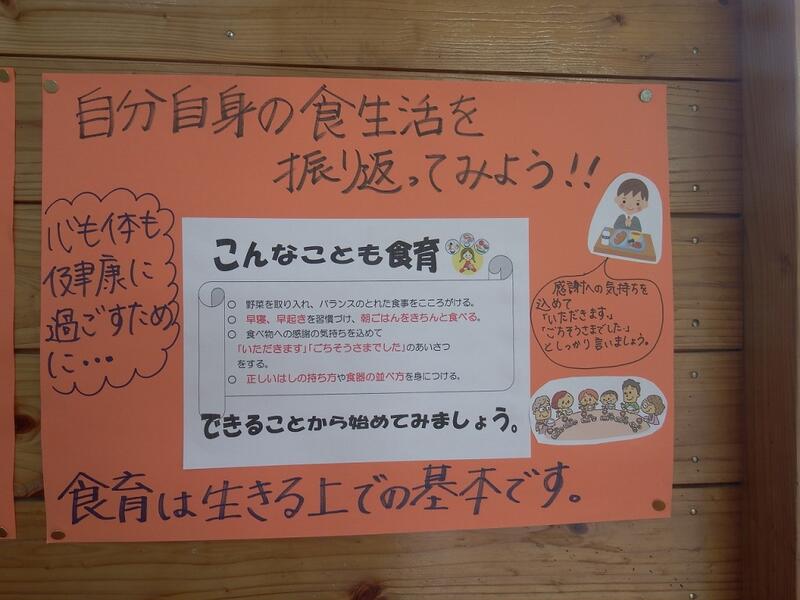 自分自身の食生活を
振り返ってみよう!!
心も体も
健康に
過ごすため
に…
こんなことも食育
○ 野菜を取り入れ、バランスのとれた食事をこころがける。
○ 早寝、早起きを習慣づけ、朝ごはんをきちんと食べる。
○ 食べ物への感謝の気持ちを込めて
「いただきます」「ごちそうさまでした」のあいさつ
をする。
○ 正しいはしの持ち方や食器の並べ方を身につける。
できることから始めてみましょう。
感謝への気持ちを
込めて
「いただきます。」
「ごちそうさまでした。」
としっかり言いましょう。
食育は生きる上での基本です。